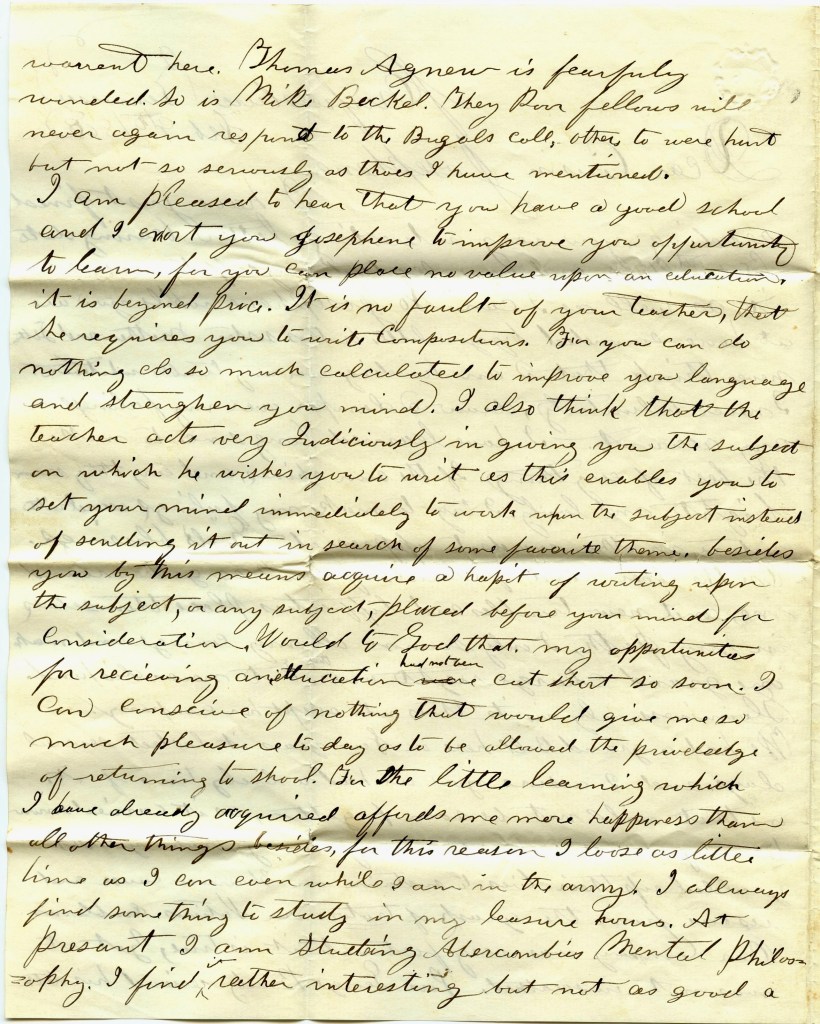 warrent here. Thomas Agnew is fearfuly
wunded. So is Mike Beckel. They Poor fellows will
never again respond to the Bugals call, others to were hurt
but not so seriously as thoes I have mentioned.
I am pleased to hear that you have a good school
and I exort you Josephene to improve you opportunity
to learn, for you can place no value upon an education.
it is beyond price. It is no fault of your teacher, that
he requires you to write Compositions. For you can do
nothing els so much calculated to improve you language
and strenghen you mind. I also think that the
teacher acts very Judiciously in giving you the subject
on which he wishes you to writ as this enables you to
set your mind immediately to work upon the subject instead
of sending it out in search of some favorite theme. besides
you by this means acquire a hapit of writing upon
the subject, or any subject, placed before your mind for
Consideration. Would to God that my opportunities
for recieving an education had not been cut short so soon. I
can conscive of nothing that would give me so
much pleasure to day as to be allowed the priveladge
of returning to shool. For the little learning which
I have already acquired affords me more happiness than
all other things besides, for this reason I loose as little
time as I can even while I am in the army. I allways
find something to study in my leasure hours. At
presant I am studing Abercrombies Mental Philos=
=ophy. I find it rather interesting but not as good a